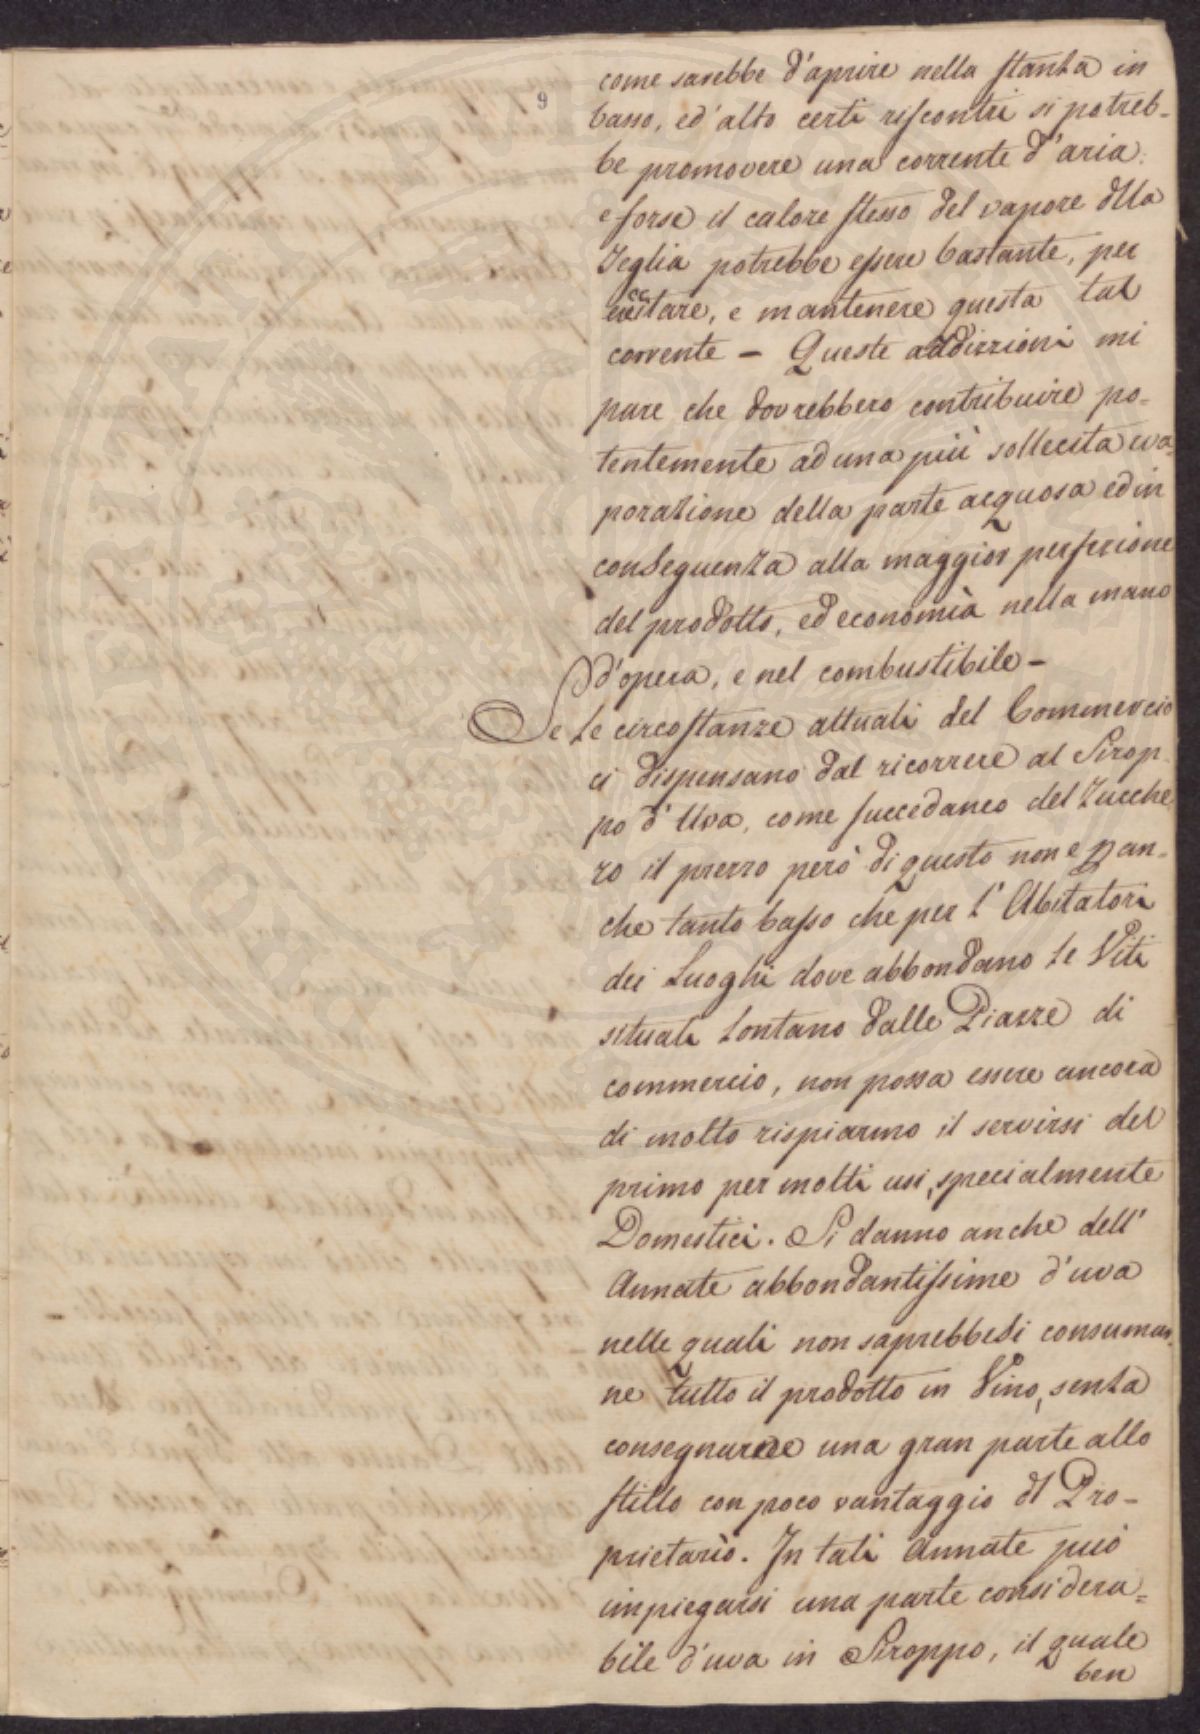 9
come sarebbe d'aprire nella stanza in
basso, ed' alto certi riscontri si potreb-
be promovere una corrente d'aria.
e forse il calore stesso del vapore dlla
Teglia potrebbe essere bastante, per
eccitare, e mantenere questa tal
corrente – Queste addizzioni mi
pare che dovrebbero contribuire po-
tentemente ad una più sollecita eva-
porazione della parte acquosa ed in
conseguenza alla maggior perfezione
del prodotto, ed economìa nella mano
d'opera, e nel combustibile –
Se le circostanze attuali del Commercio
ci dispensano dal ricorrere al Sirop-
po d'Uva, come succedaneo del Zucche
ro il prezzo però di questo non e p an-
che tanto basso che per l'Abitatori
dei Luoghi dove abbondano le Viti
situati lontano dalle Piazze di
commercio, non possa essere ancora
di molto rispiarmo il servirsi del
primo per molti usi, specialmente
Domestici. Si danno anche dell'
Annate abbondantissime d'uva
nelle quali non saprebbesi consumar
ne tutto il prodotto in Vino, senza
consegnarne una gran parte allo
stillo con poco vantaggio dl Pro-
prietario. In tali Annate può
impiegarsi una parte considera=
bile d'uva in Siroppo, il quale
ben